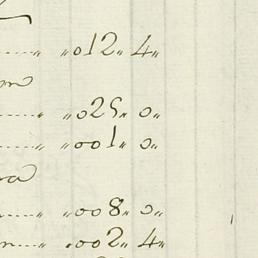 〃012〃 4〃
〃025〃 0〃
〃001〃 0〃
ra
〃008〃 0〃
〃002〃 4〃